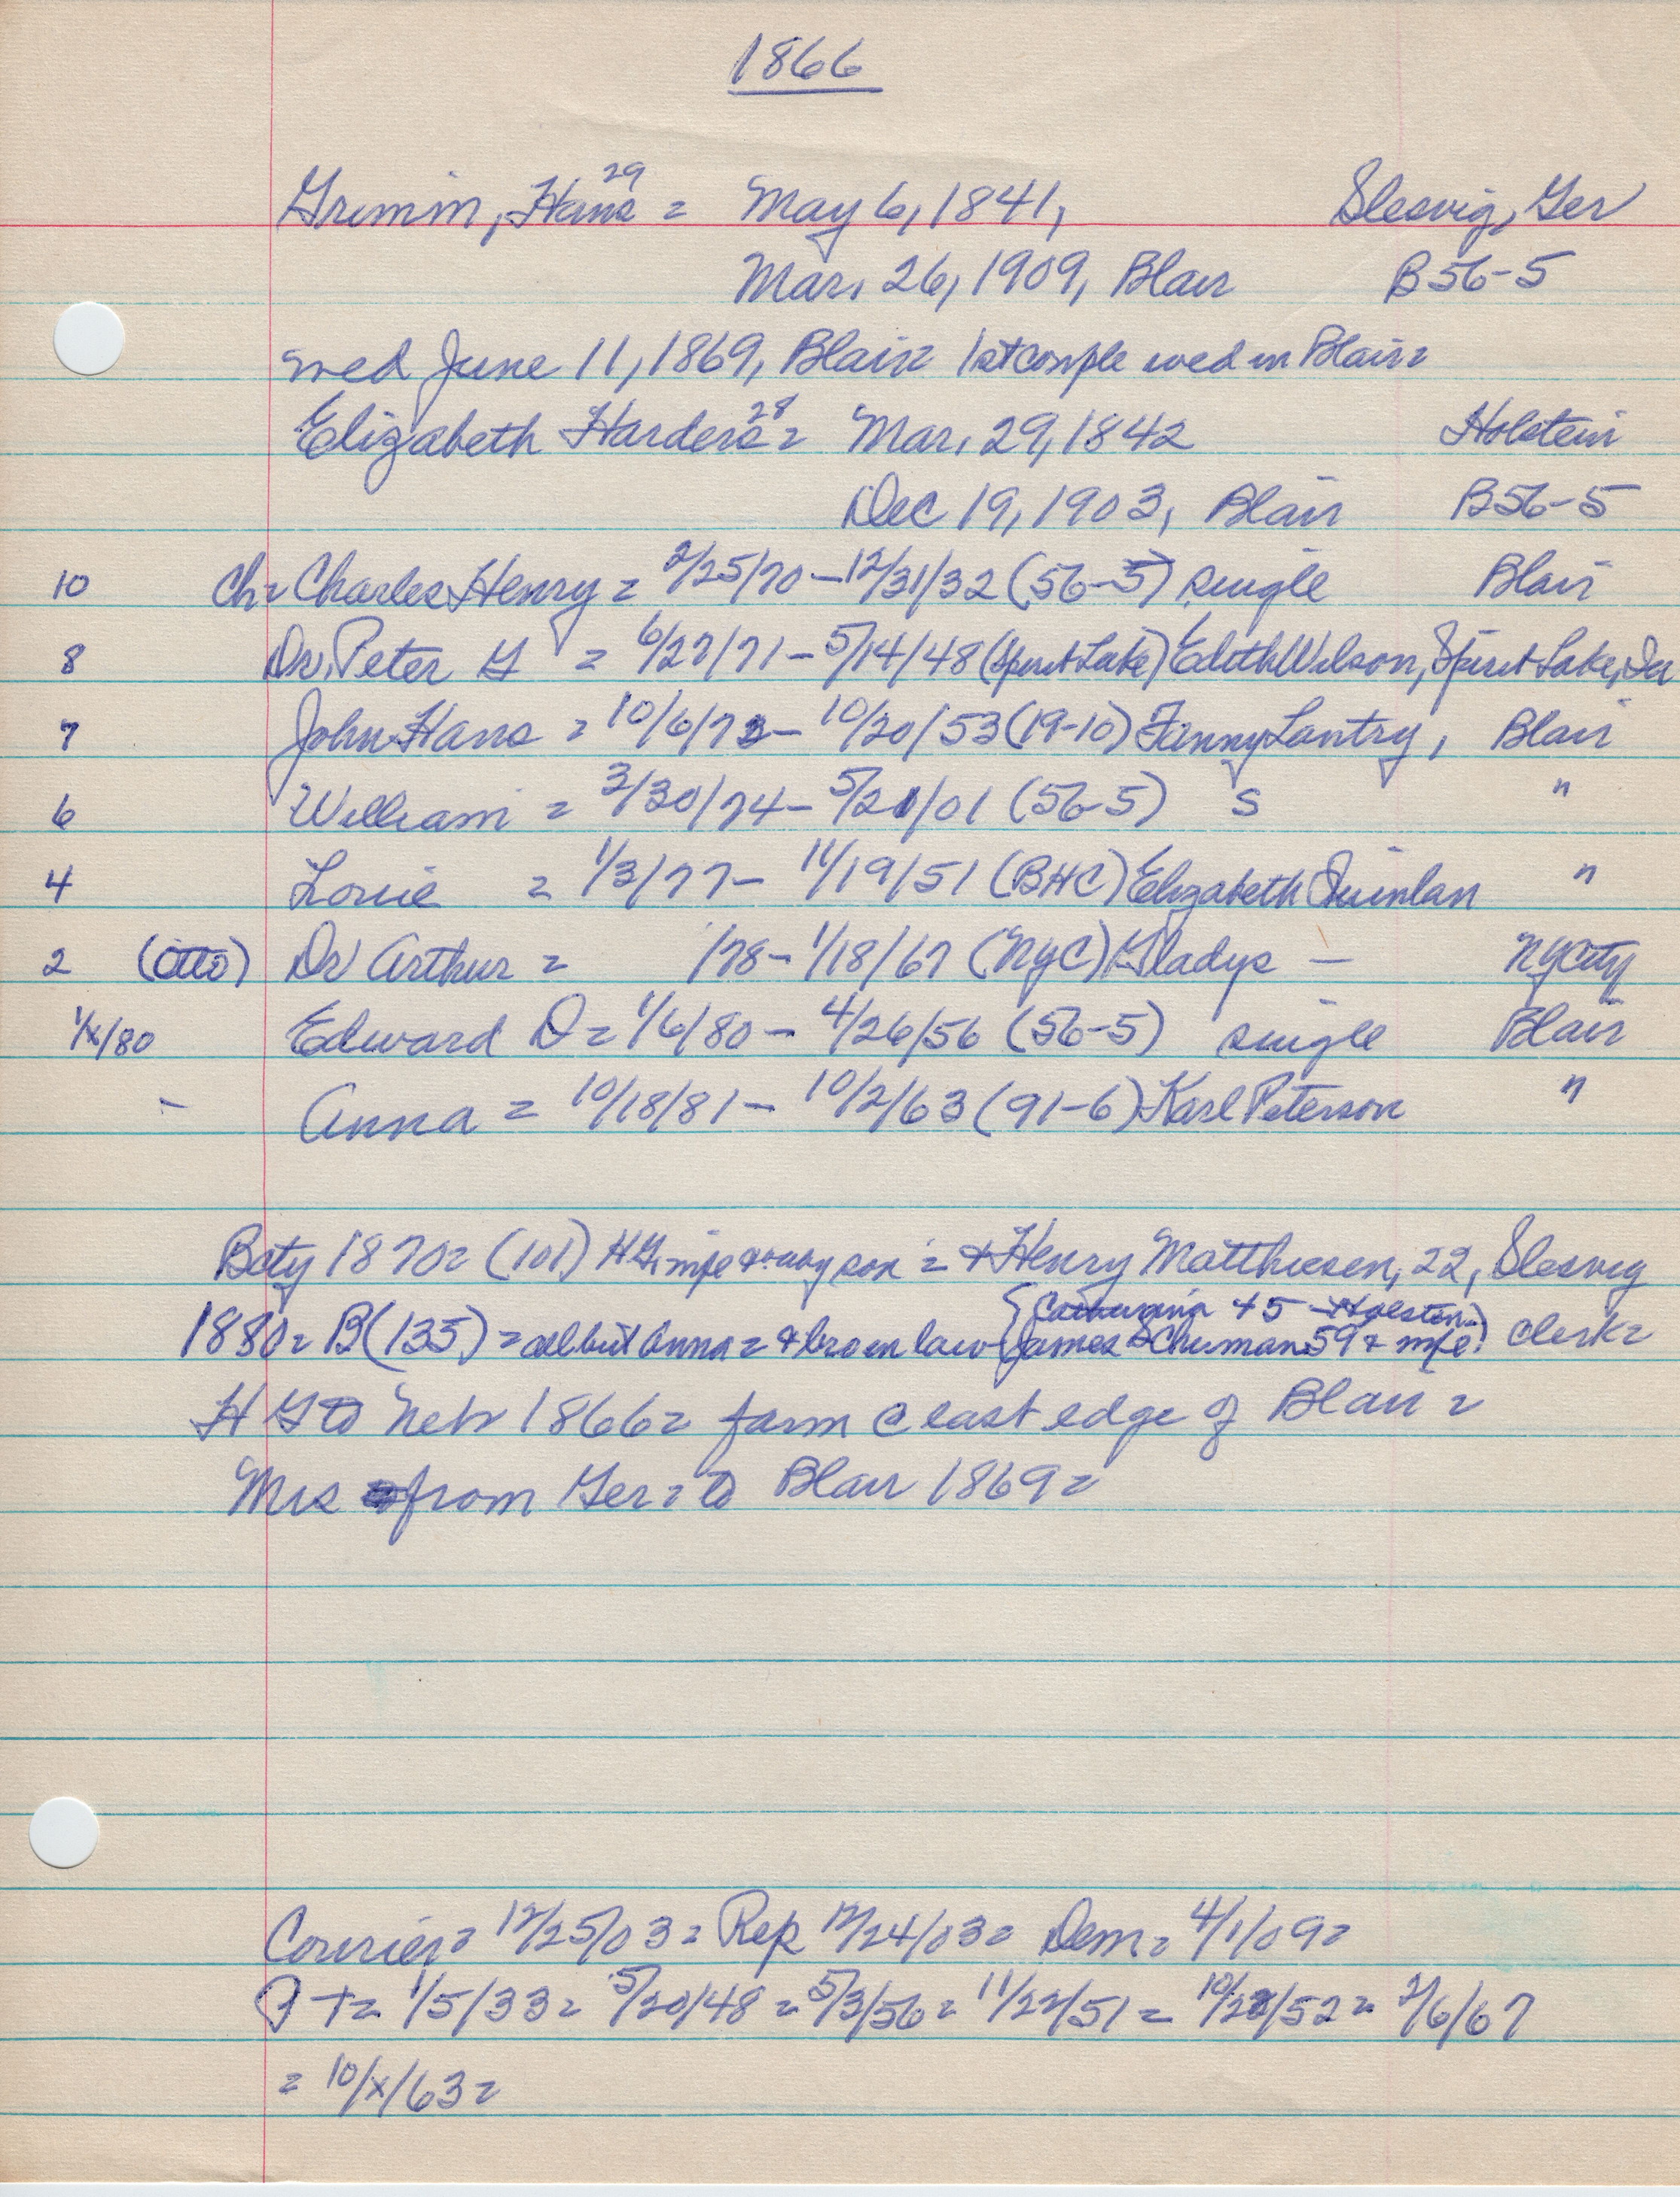 1866
Grimm, Hans 29 = May 6, 1841, Slesvig, Ger
Mar. 26, 1909, Blair B56-5
wed June 11, 1869, Blair 1st couple wed in Blair =
Elizabeth Harders 28 = Mar. 29, 1842 Holstein
Dec 19, 1903, Blair B56-5
10 Ch = Charles Henry = 2/25/70 - 12/31/32 (56-5) single Blair
8 Dr. Peter G = 6/27/71 - 5/14/48 (Spirit Lake) Edith Wilson, Spirit Lake, Ia
7 John Hans = 10/6/72 - 10/20/53 (19-10) Fanny Lantry, Blair
6 William = 3/30/74 - 5/21/01 (56-5) S "
4 Louie = 1/3/77 - 11/19/51 (BHC) Elizabeth Quinlan "
2 (Otto) Dr Arthur = /78 - 1/18/67 (NYC) Gladys — NYCity
1/x/80 Edward D = 1/6/80 - 4/26/56 (56-5) single Blair
- Anna = 10/18/81 - 10/2/63 (91-6) Karl Peterson "
Bcty 1870 = (101) HG, wife & baby son = & Henry Matthiesen, 22, Slesvig
{Catherina 45 - Holstein}
1880 = B (135) = all but Anna = & bro in law (James Schuman 59 & wife) clerk =
H G to Neb 1866 = farm @ east edge of Blair =
Mrs from Ger = to Blair 1869 =
Courier = 12/25/03 = Rep 12/24/03 = Dem = 4/1/09 =
P T = 1/5/33 = 5/20/48 = 5/3/56 = 11/22/51 = 10/22/52 = 2/6/67
= 10/x/63 =